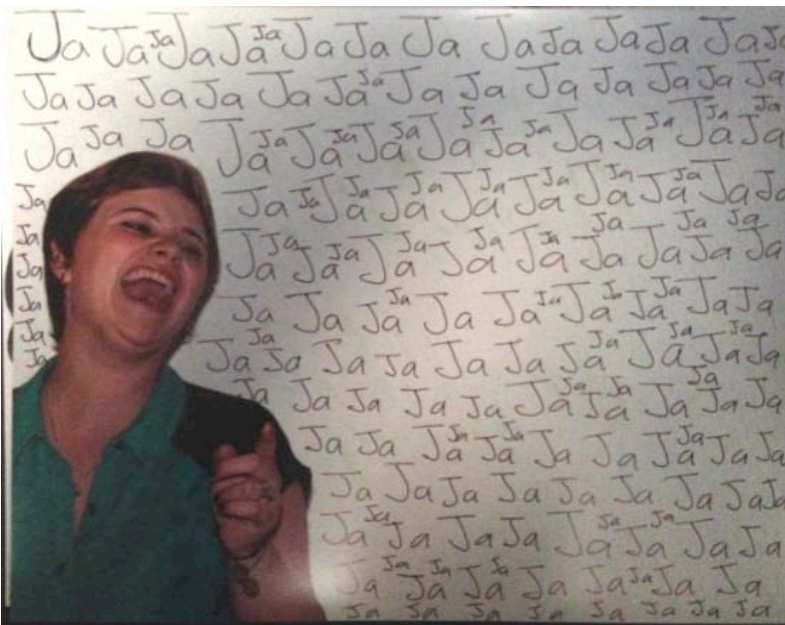 Ja Ja Ja Ja Ja Ja Ja Ja Ja Ja Ja Ja Ja Ja Ja
Ja Ja Ja Ja Ja Ja Ja Ja Ja Ja Ja Ja Ja Ja
Ja Ja Ja Ja Ja Ja Ja Ja Ja Ja Ja Ja Ja Ja Ja Ja Ja Ja Ja Ja
Ja Ja Ja Ja Ja Ja Ja Ja Ja Ja Ja Ja Ja Ja Ja Ja Ja
Ja Ja Ja Ja Ja Ja Ja Ja Ja Ja Ja Ja Ja Ja Ja Ja Ja Ja
Ja
Ja Ja Ja Ja Ja Ja Ja Ja Ja Ja Ja Ja Ja Ja
Ja Ja Ja Ja Ja Ja Ja Ja Ja Ja Ja Ja Ja Ja Ja
Ja Ja Ja Ja Ja Ja Ja Ja Ja Ja Ja Ja Ja Ja
Ja Ja Ja Ja Ja Ja Ja Ja Ja Ja Ja Ja
Ja Ja Ja Ja Ja Ja Ja Ja Ja
Ja Ja Ja Ja Ja Ja Ja Ja Ja Ja Ja
Ja Ja Ja Ja Ja Ja Ja Ja Ja Ja Ja
Ja Ja Ja Ja Ja Ja Ja Ja